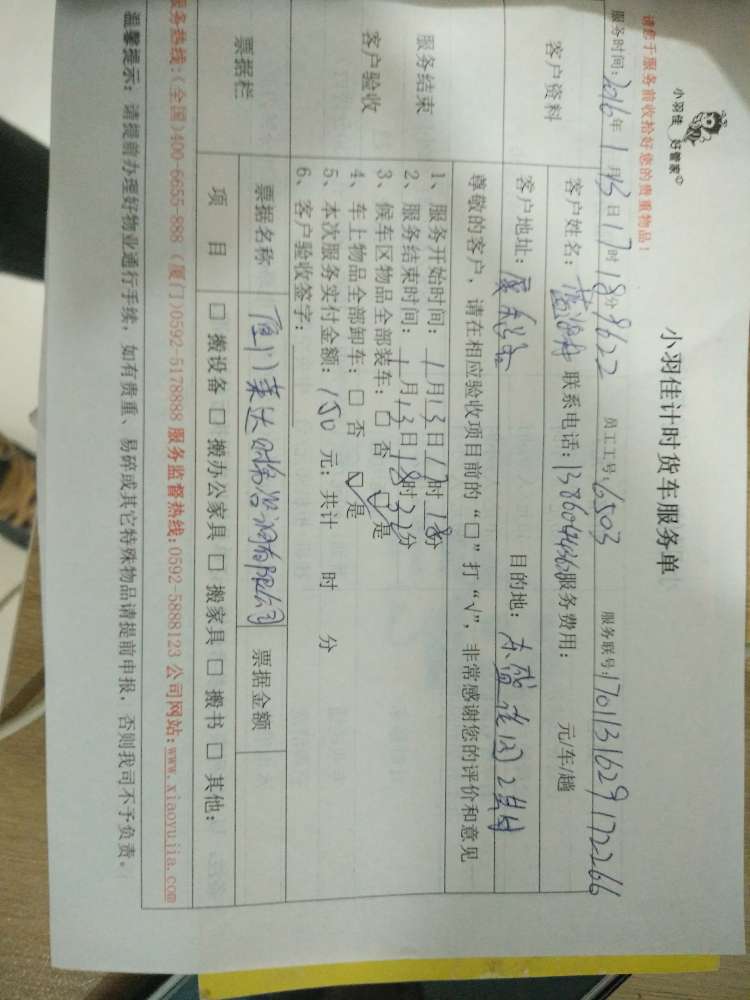 小羽佳 好管家
小羽佳计时货车服务单
请您于服务前收拾好您的贵重物品！
服务时间：2016年1月13日17时18分 9622 员工工号：6503 服务联号：1701131629172266
客户资料
客户姓名： 联系电话：服务费用： 元/车/趟
客户地址： 目的地：
尊敬的客户，请在相应验收项目前的“□”打“√”，非常感谢您的评价和意见
服务结束
客户验收
1、服务开始时间：1月13日17时18分
2、服务结束时间：1月13日18时32分
3、候车区物品全部装车：□ 否 ☑ 是
4、车上物品全部卸车：□ 否 ☑ 是
5、本次服务实付金额：150 元；共计 时 分
6、客户验收签字：
票据栏
票据名称 厦门 有限公司 票据金额
项 目 □ 搬设备 □ 搬办公家具 □ 搬家具 □ 搬书 □ 其他：
服务热线：（全国）400-6655-888（厦门）0592-5178888 服务监督热线：0592-5888123 公司网站：www.xiaoyujia.com
温馨提示：请提前办理好物业通行手续，如有贵重、易碎或其它特殊物品请提前申报，否则我司不予负责。